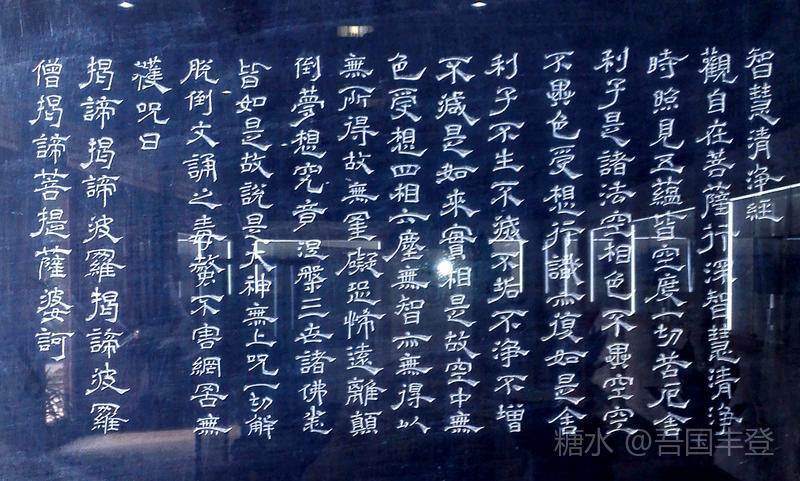 智慧清淨經
觀自在菩薩行深智慧清淨
時照見五蘊皆空度一切苦厄舍
利子是諸法空相色不異空空
不異色受想行識亦復如是舍
利子不生不滅不垢不淨不增
不減是如來實相是故空中無
色受想四相六塵無智亦無得以
無所得故無罣礙恐怖遠離顛
倒夢想究竟涅槃三世諸佛悉
皆如是故說是大神無上呪一切解
脫倒文誦之毒螫不害網罟無
獲呪曰
揭諦揭諦波羅揭諦波羅
僧揭諦菩提薩婆訶
糖水 @吾国丰登